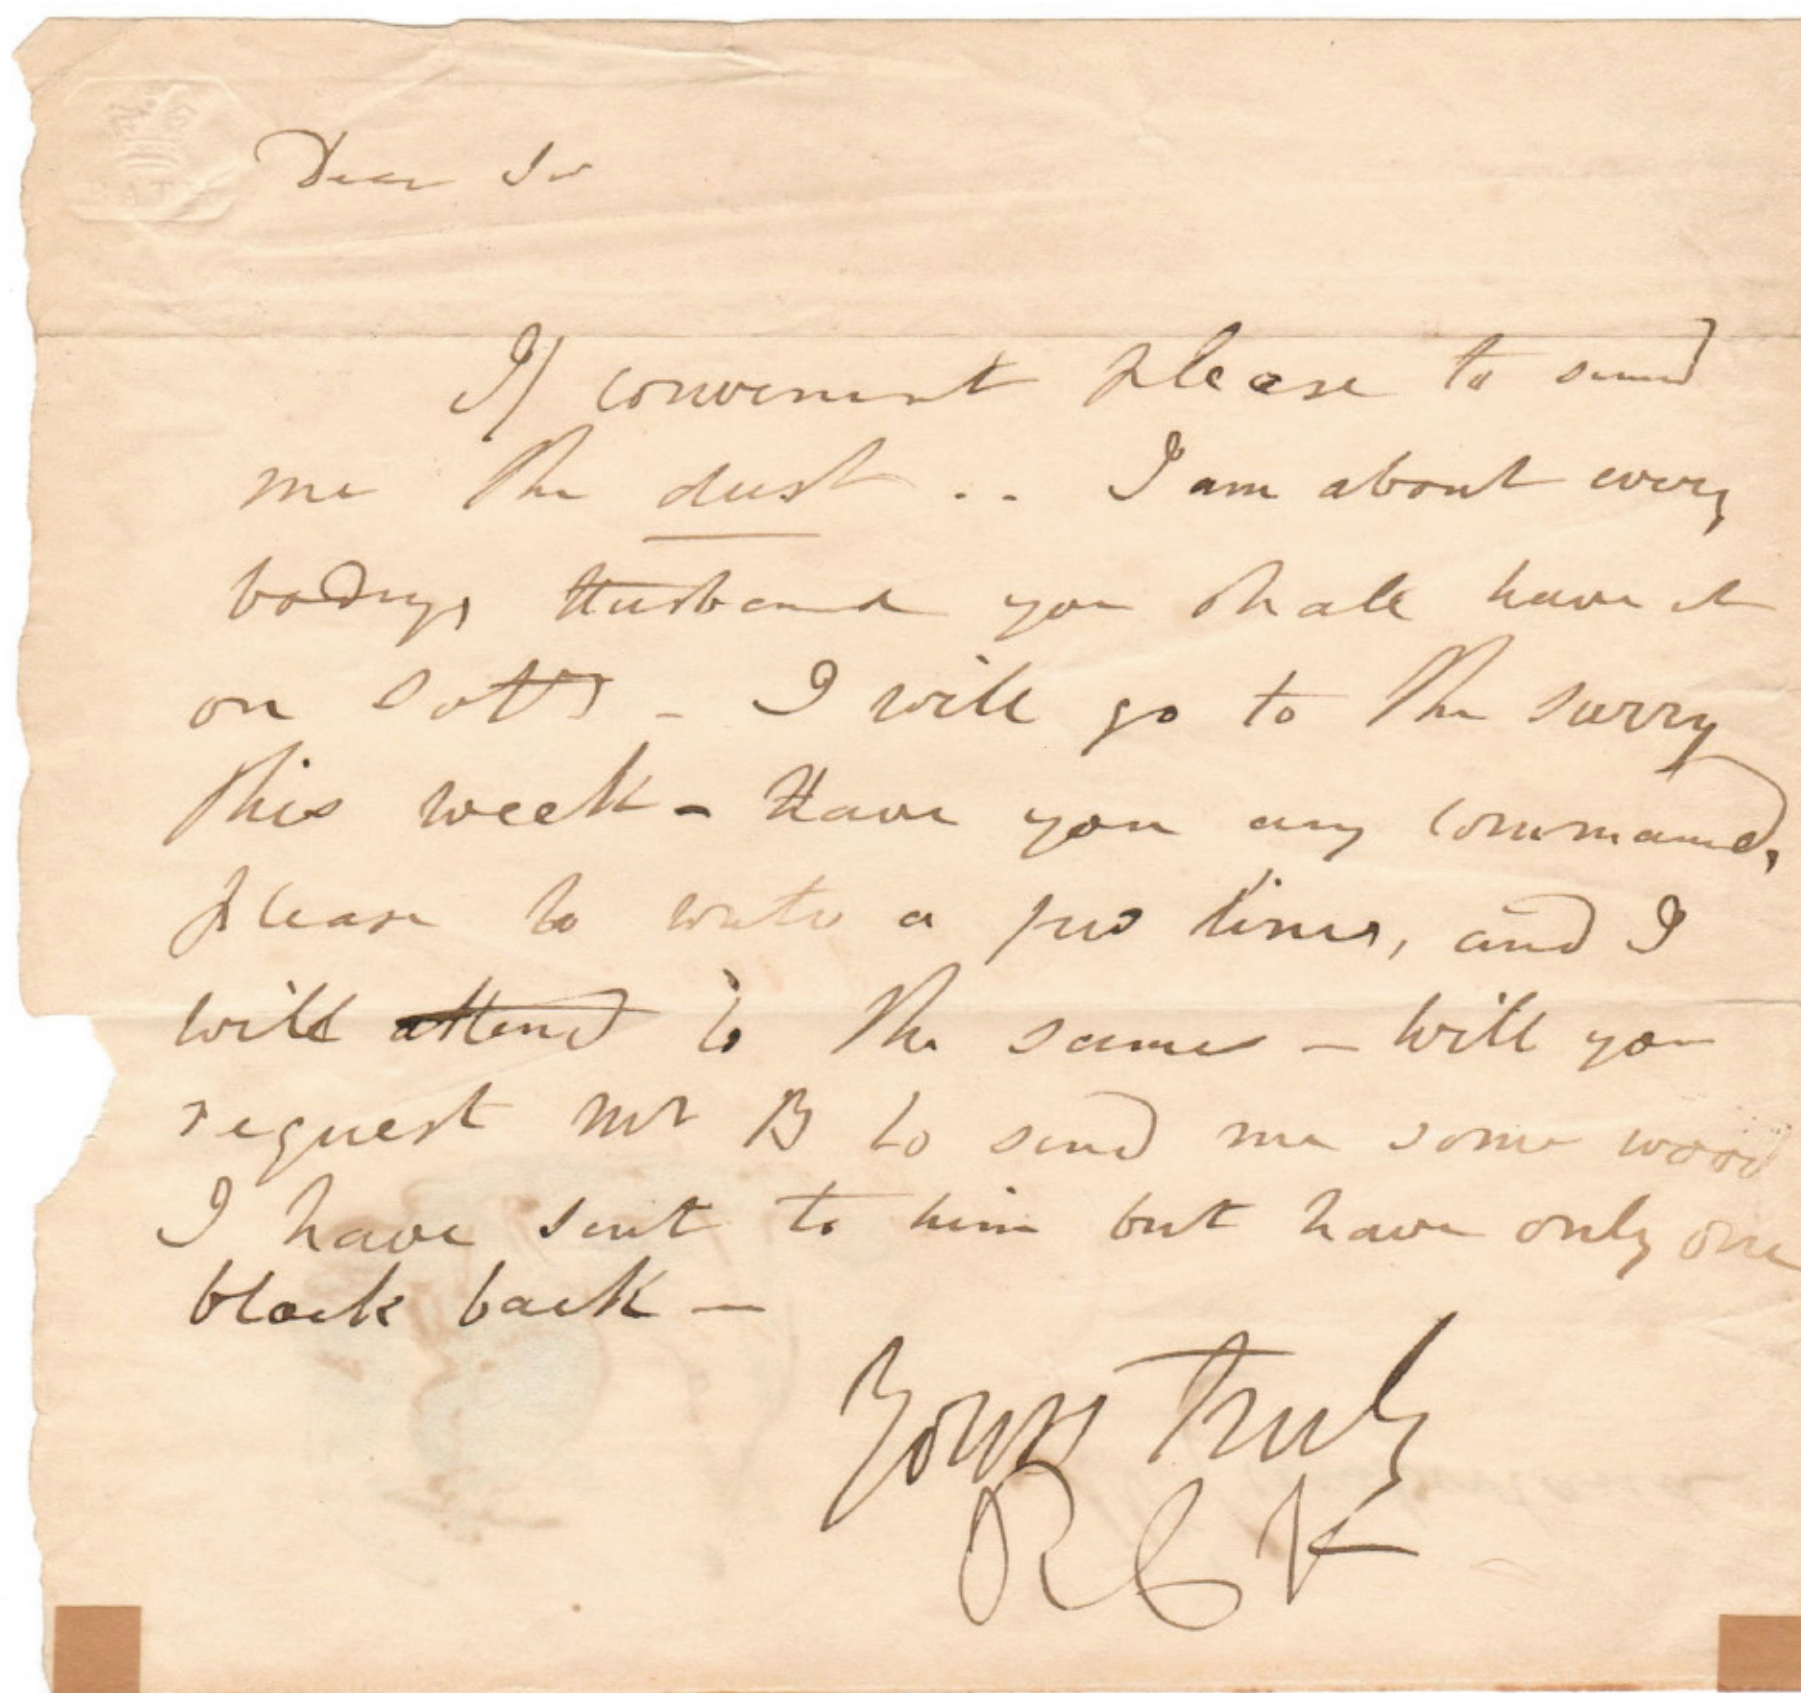 Dear Sir
If convenient please to send
me the dust .. I am about every
bodys Husband you shall have it
on - I will go to the Surry
this week - Have you any command,
please to write a few lines, and I
will attend to the same - will you
request Mr B to send me some wood
I have sent to him but have only one
block back -
Yours truly
R C K